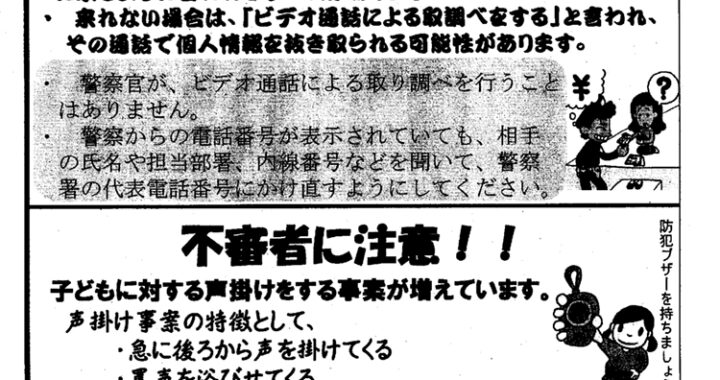 ・ 来れない場合は、「ビデオ通話による取調べをする」と言われ、
その通話で個人情報を抜き取られる可能性があります。
・ 警察官が、ビデオ通話による取り調べを行うこと
はありません。
・ 警察からの電話番号が表示されていても、相手
の氏名や担当部署、内線番号などを聞いて、警察
署の代表電話番号にかけ直すようにしてください。
¥
?
不審者に注意！！
子どもに対する声掛けをする事案が増えています。
声掛け事案の特徴として、
・急に後ろから声を掛けてくる
・罵声を浴びせてくる
防犯ブザーを持ちましょ